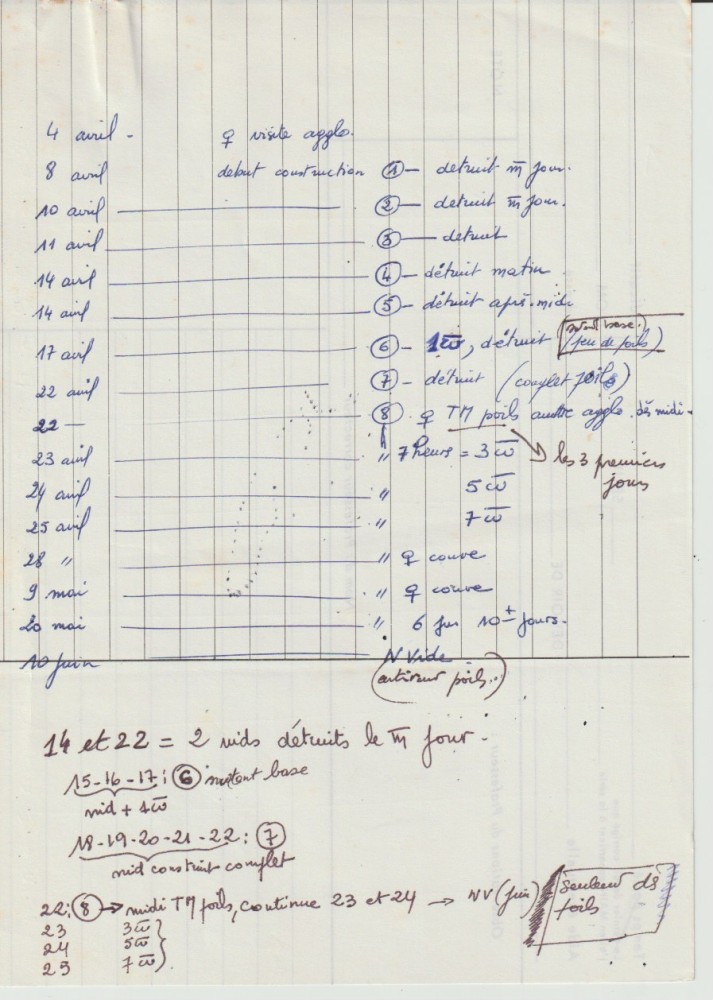 4 avril - ♀ visite agglo.
8 avril début construction ① - détruit m̄ jour.
10 avril ② - détruit m̄ jour.
11 avril ③ - détruit
14 avril ④ - détruit matin
14 avril ⑤ - détruit après-midi
17 avril ⑥ - 1ω̄, détruit (surtout base. / peu de poils)
22 avril ⑦ - détruit (complet poils)
22 — ⑧ ♀ TM poils autre agglo. dès midi -
23 avril " 7 heures = 3 ω̄ → les 3 premiers jours
24 avril " 5 ω̄
25 avril " 7 ω̄
28 " " ♀ couve
9 mai " ♀ couve
20 mai " 6 jus 10 ± jours.
10 juin N Vide
(poils..)
14 et 22 = 2 nids détruits le m̄ jour.
15-16-17 : ⑥ surtout base
nid + 1ω̄
18-19-20-21-22 : ⑦
nid construit complet
22 : ⑧ → midi TM poils, continue 23 et 24 → NV (juin) seulement ds poils
23 3ω̄
24 5ω̄
25 7ω̄.